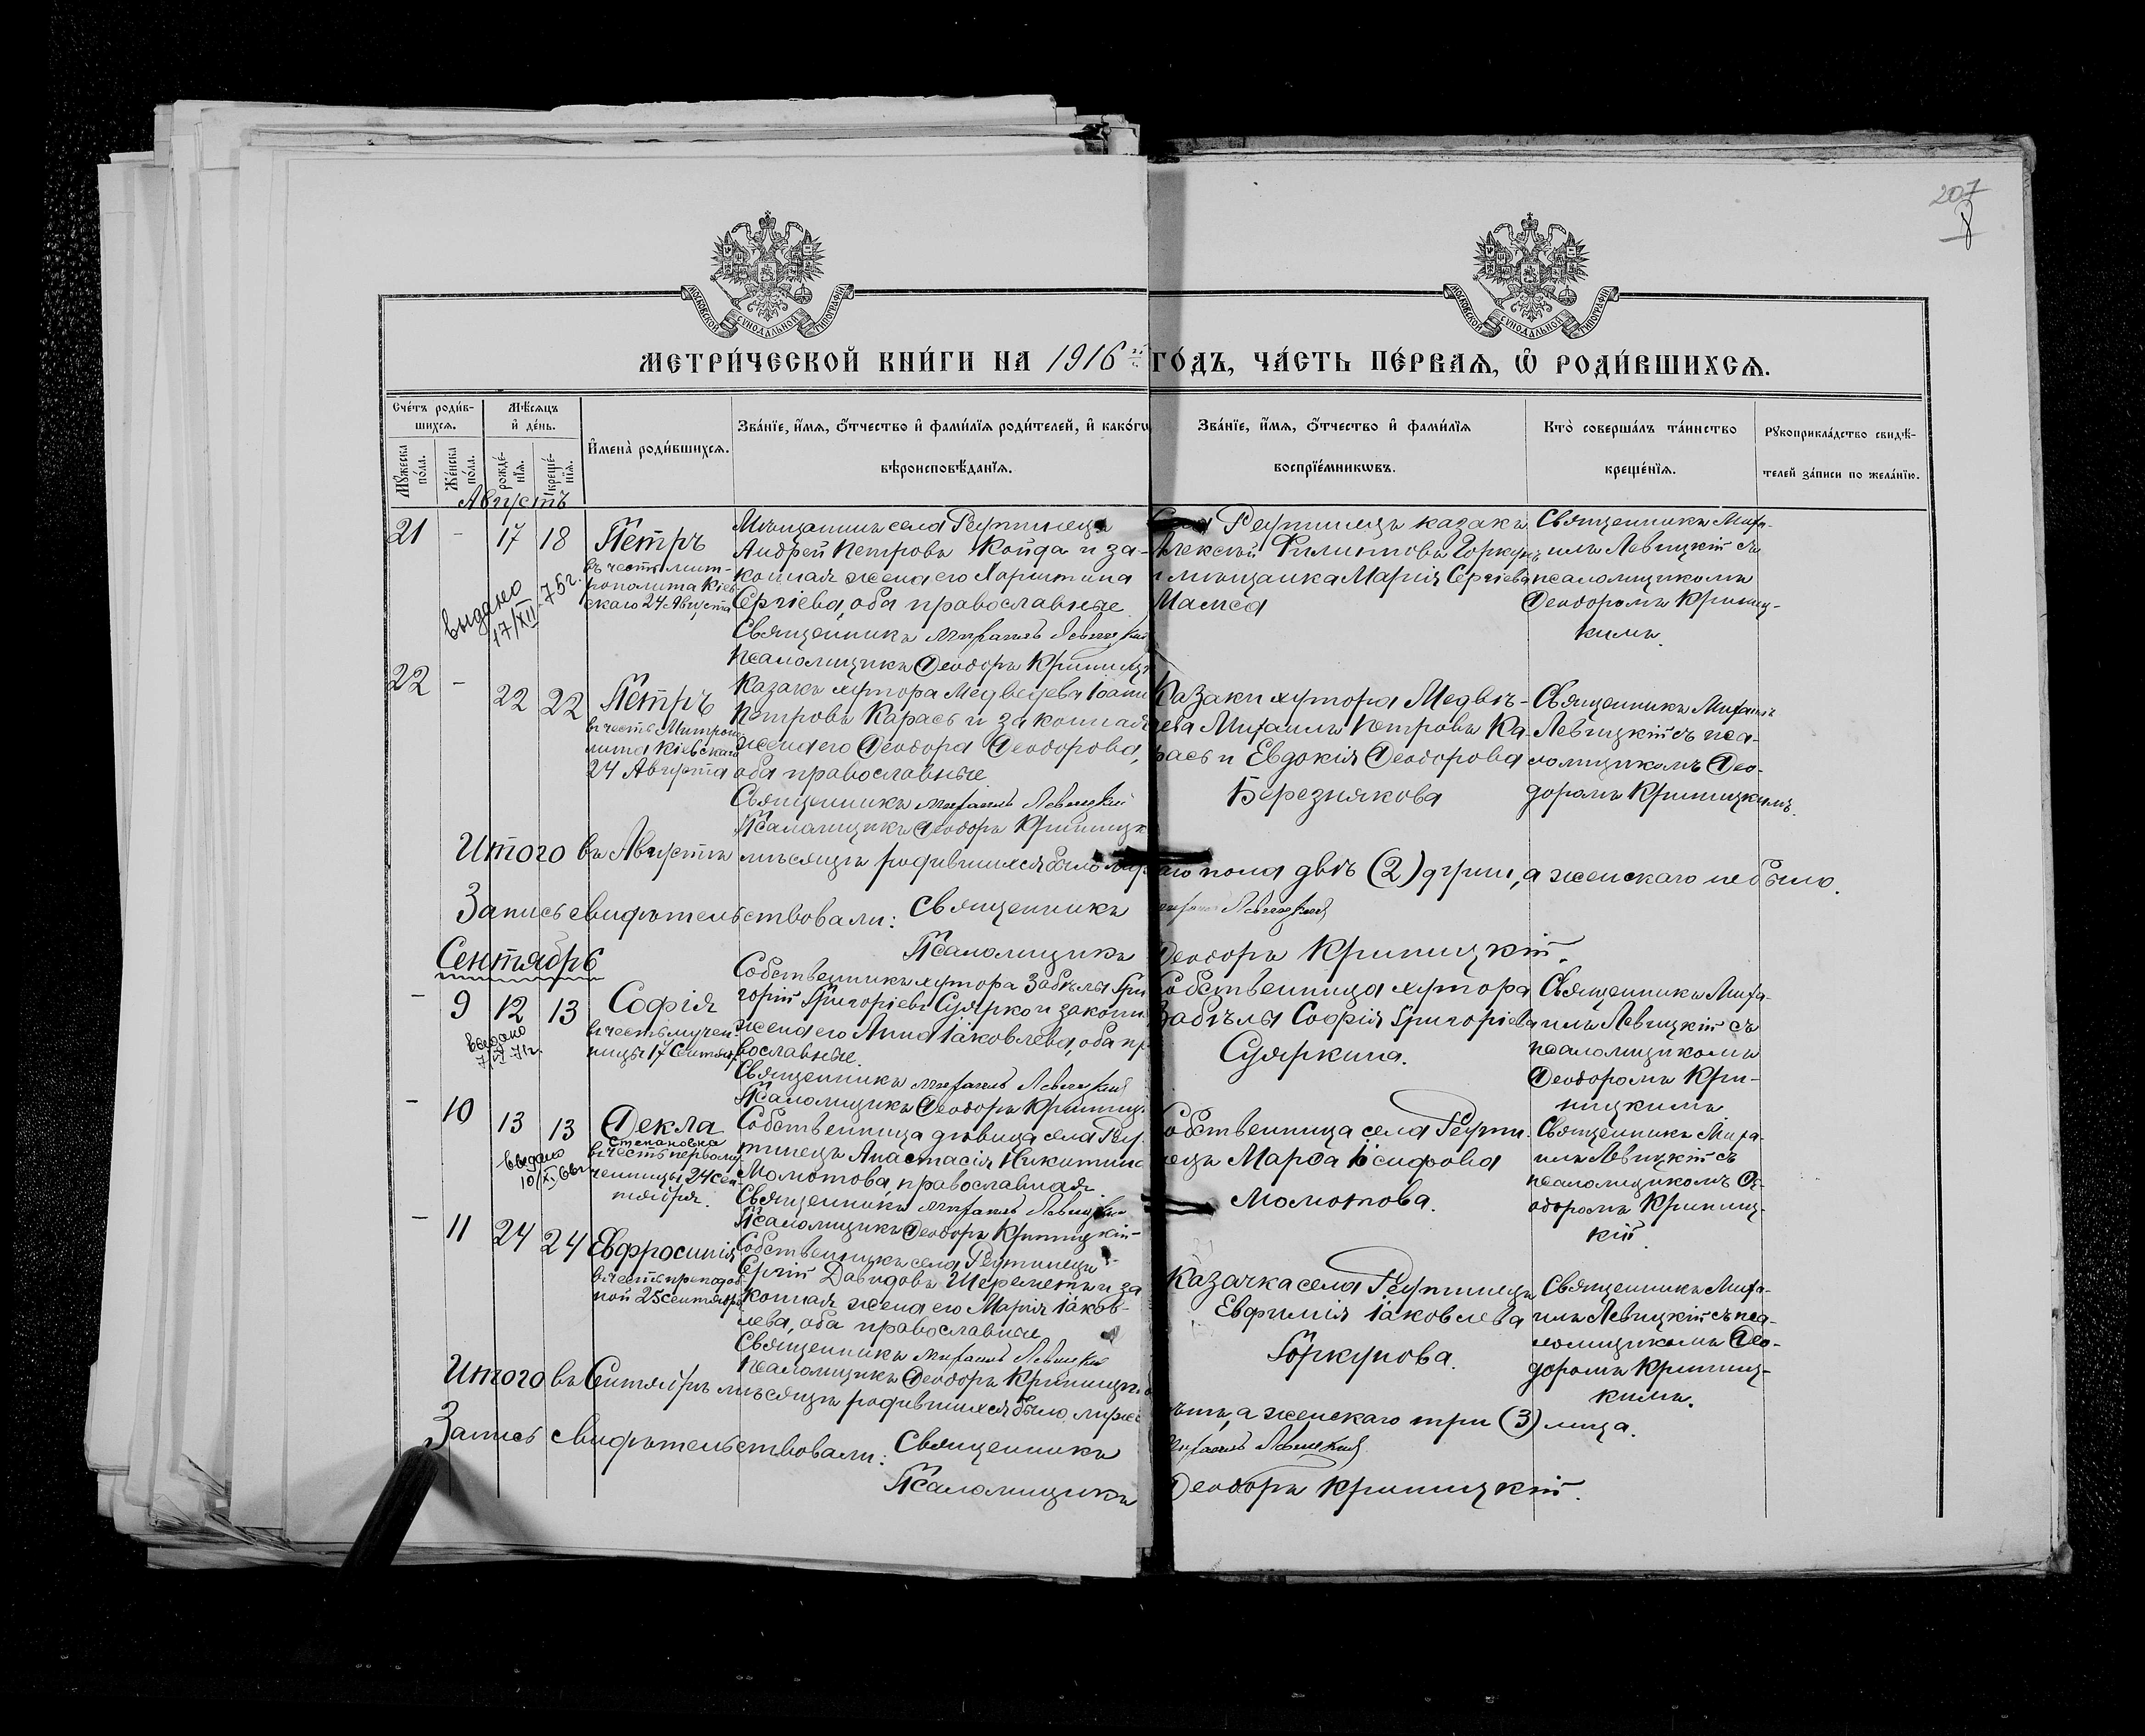 207
8
МОСКОВСКОЙ СѴНОДАЛЬНОЙ ТИПОГРАФІИ
МОСКОВСКОЙ СѴНОДАЛЬНОЙ ТИПОГРАФІИ
МЕТРИ́ЧЕСКОЙ КНИ́ГИ НА 1916 ГО́ДЪ, ЧА́СТЬ ПЕ́РВАѦ, Ѽ РОДИ́ВШИХСѦ.
Сче́тъ роди́в-
шихсѧ.
Мꙋ́жеска по́ла.
Же́нска по́ла.
Мѣ́сѧцъ
и҆ де́нь.
рожде́-
нїѧ.
креще́-
нїѧ.
И҆мена̀ роди́вшихсѧ.
Зва́нїе, и҆́мѧ, ѻ҆́тчество и҆ фами́лїѧ роди́телей, и҆ како́гѡ
вѣроисповѣ́данїѧ.
Зва́нїе, и҆́мѧ, ѻ҆́тчество и҆ фами́лїѧ
воспрїе́мникѡвъ.
Кто̀ соверша́лъ та́инство
креще́нїѧ.
Рꙋкоприкла́дство свидѣ́-
телей за́писи по жела́нїю.
Августъ
21 - 17 18 Петръ
въ честь мит-
рополита Кіев-
скаго 24 Августа
выдано
17/XII-75г.
Мѣщанинъ села Реутинецъ
Андрей Петровъ Койда и за-
конная жена его Харитина
Сергіева, оба православные
Священникъ Михаилъ Левицкій
Псаломщикъ Ѳеодоръ Криниц
Села Реутинецъ казакъ
Алексѣй Филипповъ Горкунъ
и мѣщанка Марія Сергіева
Мамса
Священникъ Миха-
илъ Левицкій съ
псаломщикомъ
Ѳеодоромъ Криниц-
кимъ.
22 - 22 22 Петръ
въ честь Митропо-
лита Кіевскаго
24 Августа
Казакъ хутора Медведева Іоаннъ
Петровъ Карась и законная
жена его Ѳеодора Ѳеодорова,
оба православные
Священникъ Михаилъ Левицкій
Псаломщикъ Ѳеодоръ Криницк
Казаки хутора Медвѣ-
дева Михаилъ Петровъ Ка-
рась и Евдокія Ѳеодорова
Березнякова
Священникъ Михаилъ
Левицкій съ пса-
ломщикомъ Ѳео-
доромъ Криницкимъ.
Итого въ Августѣ мѣсяцѣ родившихся было мужскаго пола двѣ (2) души, а женскаго не было.
Запись свидѣтельствовали: Священникъ Михаилъ Левицкій
Псаломщикъ Ѳеодоръ Криницкій.
Сентябрь
- 9 12 13 Софія
въ честь мучен-
ницы 17 Сентяб.
выдано
7/IV-71г.
Собственникъ хутора Забѣлы Гри
горій Григорьевъ Суярко и законн
жена его Анна Іаковлева, оба пр
вославные
Священникъ Михаилъ Левицкій
Псаломщикъ Ѳеодоръ Криниц
Собственница хутора
Забѣлы Софія Григоріева
Суяркина.
Священникъ Миха-
илъ Левицкій съ
псаломщикомъ
Ѳеодоромъ Кри-
ницкимъ
- 10 13 13 Ѳекла
Степановна
въ честь первому-
ченицы 24 Сен-
тября.
выдано
10/X-66г
Собственница дѣвица села Реу-
тинецъ Анастасія Никитина
Момотова, православная
Священникъ Михаилъ Левицкій
Псаломщикъ Ѳеодоръ Криницкій
Собственница села Реути-
нецъ Марѳа Іосифова
Момотова.
Священникъ Миха-
илъ Левицкій съ
псаломщикомъ Ѳе-
одоромъ Криниц-
кій.
- 11 24 24 Евфросинія
въ честь преподоб-
ной 25 сентября
Собственникъ села Реутинецъ
Сергій Давидовъ Шереметъ и за
конная жена его Марія Іаков-
лева, оба православные
Священникъ Михаилъ Левицкій
Псаломщикъ Ѳеодоръ Криницкій
Казачка села Реутинецъ
Евфимія Іаковлева
Горкунова.
Священникъ Миха-
илъ Левицкій съ пса-
ломщикомъ Ѳео-
доромъ Криниц-
кимъ.
Итого въ Сентябрѣ мѣсяцѣ родившихся было мужс нѣтъ, а женскаго три (3) лица.
Запись свидѣтельствовали: Священникъ Михаилъ Левицкій
Псаломщикъ Ѳеодоръ Криницкій.